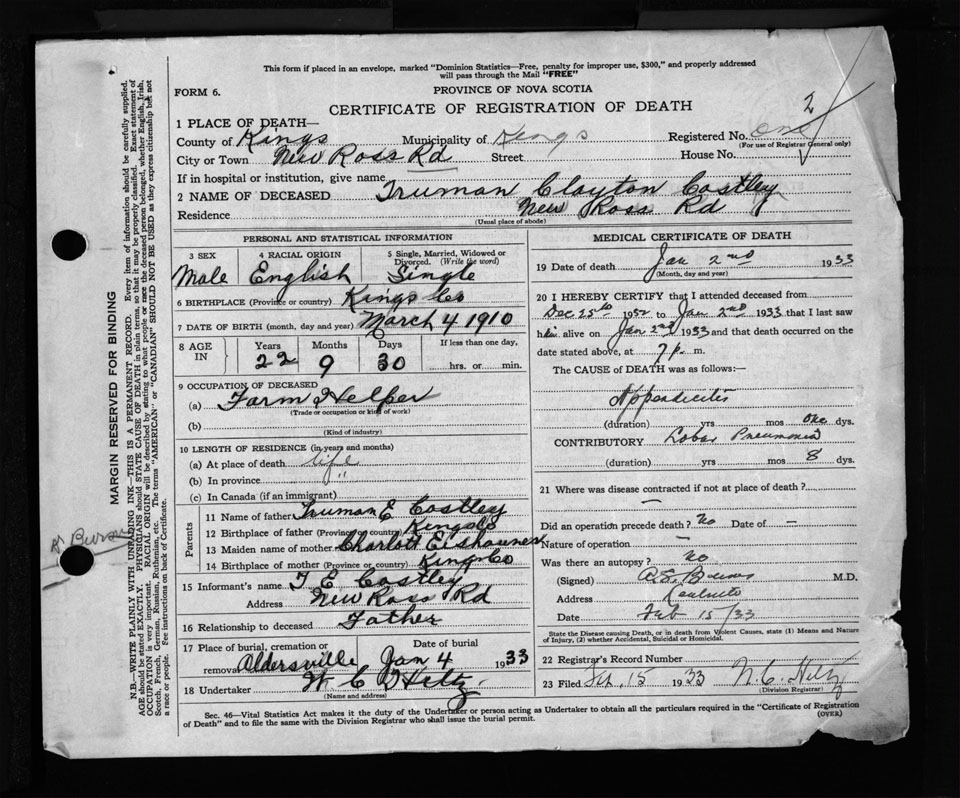 This form if placed in an envelope, marked "Dominion Statistics—Free, penalty for improper use, $300," and properly addressed
will pass through the Mail "FREE"
FORM 6.
PROVINCE OF NOVA SCOTIA
CERTIFICATE OF REGISTRATION OF DEATH
2
1 PLACE OF DEATH—
County of Kings Municipality of Kings Registered No. one
(For use of Registrar General only)
City or Town New Ross Rd Street House No.
If in hospital or institution, give name
2 NAME OF DECEASED Truman Clayton Costley
Residence New Ross Rd
(Usual place of abode)
PERSONAL AND STATISTICAL INFORMATION
3 SEX 4 RACIAL ORIGIN 5 Single, Married, Widowed or
Divorced. (Write the word)
Male English Single
6 BIRTHPLACE (Province or country) Kings Co
7 DATE OF BIRTH (month, day and year) March 4 1910
8 AGE IN Years Months Days If less than one day,
22 9 30 hrs. or min.
9 OCCUPATION OF DECEASED
(a) Farm Helper
(Trade or occupation or kind of work)
(b)
(Kind of industry)
10 LENGTH OF RESIDENCE (in years and months)
(a) At place of death life
(b) In province "
(c) In Canada (if an immigrant)
Parents
11 Name of father Truman E Costley
12 Birthplace of father (Province or country) Kings Co
13 Maiden name of mother Charlott Eishauner
14 Birthplace of mother (Province or country) King Co
15 Informant's name T E Costley
Address New Ross Rd
16 Relationship to deceased Father
17 Place of burial, cremation or removal Date of burial
Aldersville Jan 4 1933
18 Undertaker W C Hiltz
(Name and address)
MEDICAL CERTIFICATE OF DEATH
19 Date of death Jan 2nd 1933
(Month, day and year)
20 I HEREBY CERTIFY that I attended deceased from
Dec 25th 1932 to Jan 2nd 1933 that I last saw
him alive on Jan 2nd 1933 and that death occurred on
date stated above, at 7 p. m.
The CAUSE of DEATH was as follows:—
Appendicitis
(duration) yrs mos one dys.
CONTRIBUTORY Lobar Pneumonia
(duration) yrs mos 8 dys.
21 Where was disease contracted if not at place of death?
—
Did an operation precede death? No Date of —
Nature of operation —
Was there an autopsy? No
(Signed) M.D.
Address
Date Feb 15/33
State the Disease causing Death, or in death from Violent Causes, state (1) Means and Nature
of Injury, (2) whether Accidental, Suicidal or Homicidal.
22 Registrar's Record Number
23 Filed Feb. 15 1933 N.C. Hiltz
(Division Registrar)
Sec. 46—Vital Statistics Act makes it the duty of the Undertaker or person acting as Undertaker to obtain all the particulars required in the "Certificate of Registration
of Death" and to file the same with the Division Registrar who shall issue the burial permit.
(OVER)
MARGIN RESERVED FOR BINDING
N.B.—WRITE PLAINLY WITH UNFADING INK—THIS IS A PERMANENT RECORD. Every item of information should be carefully supplied.
AGE should be stated EXACTLY. PHYSICIANS should STATE CAUSE OF DEATH in plain terms, so that it may be properly classified. Exact statement of
OCCUPATION is very important. RACIAL ORIGIN will be described by stating to what people or race the deceased person belonged, whether English, Irish,
Scotch, French, German, Russian, Ruthenian, etc. The terms "AMERICAN" or "CANADIAN" SHOULD NOT BE USED as they express citizenship but not
a race or people. Fee instructions on back of Certificate.